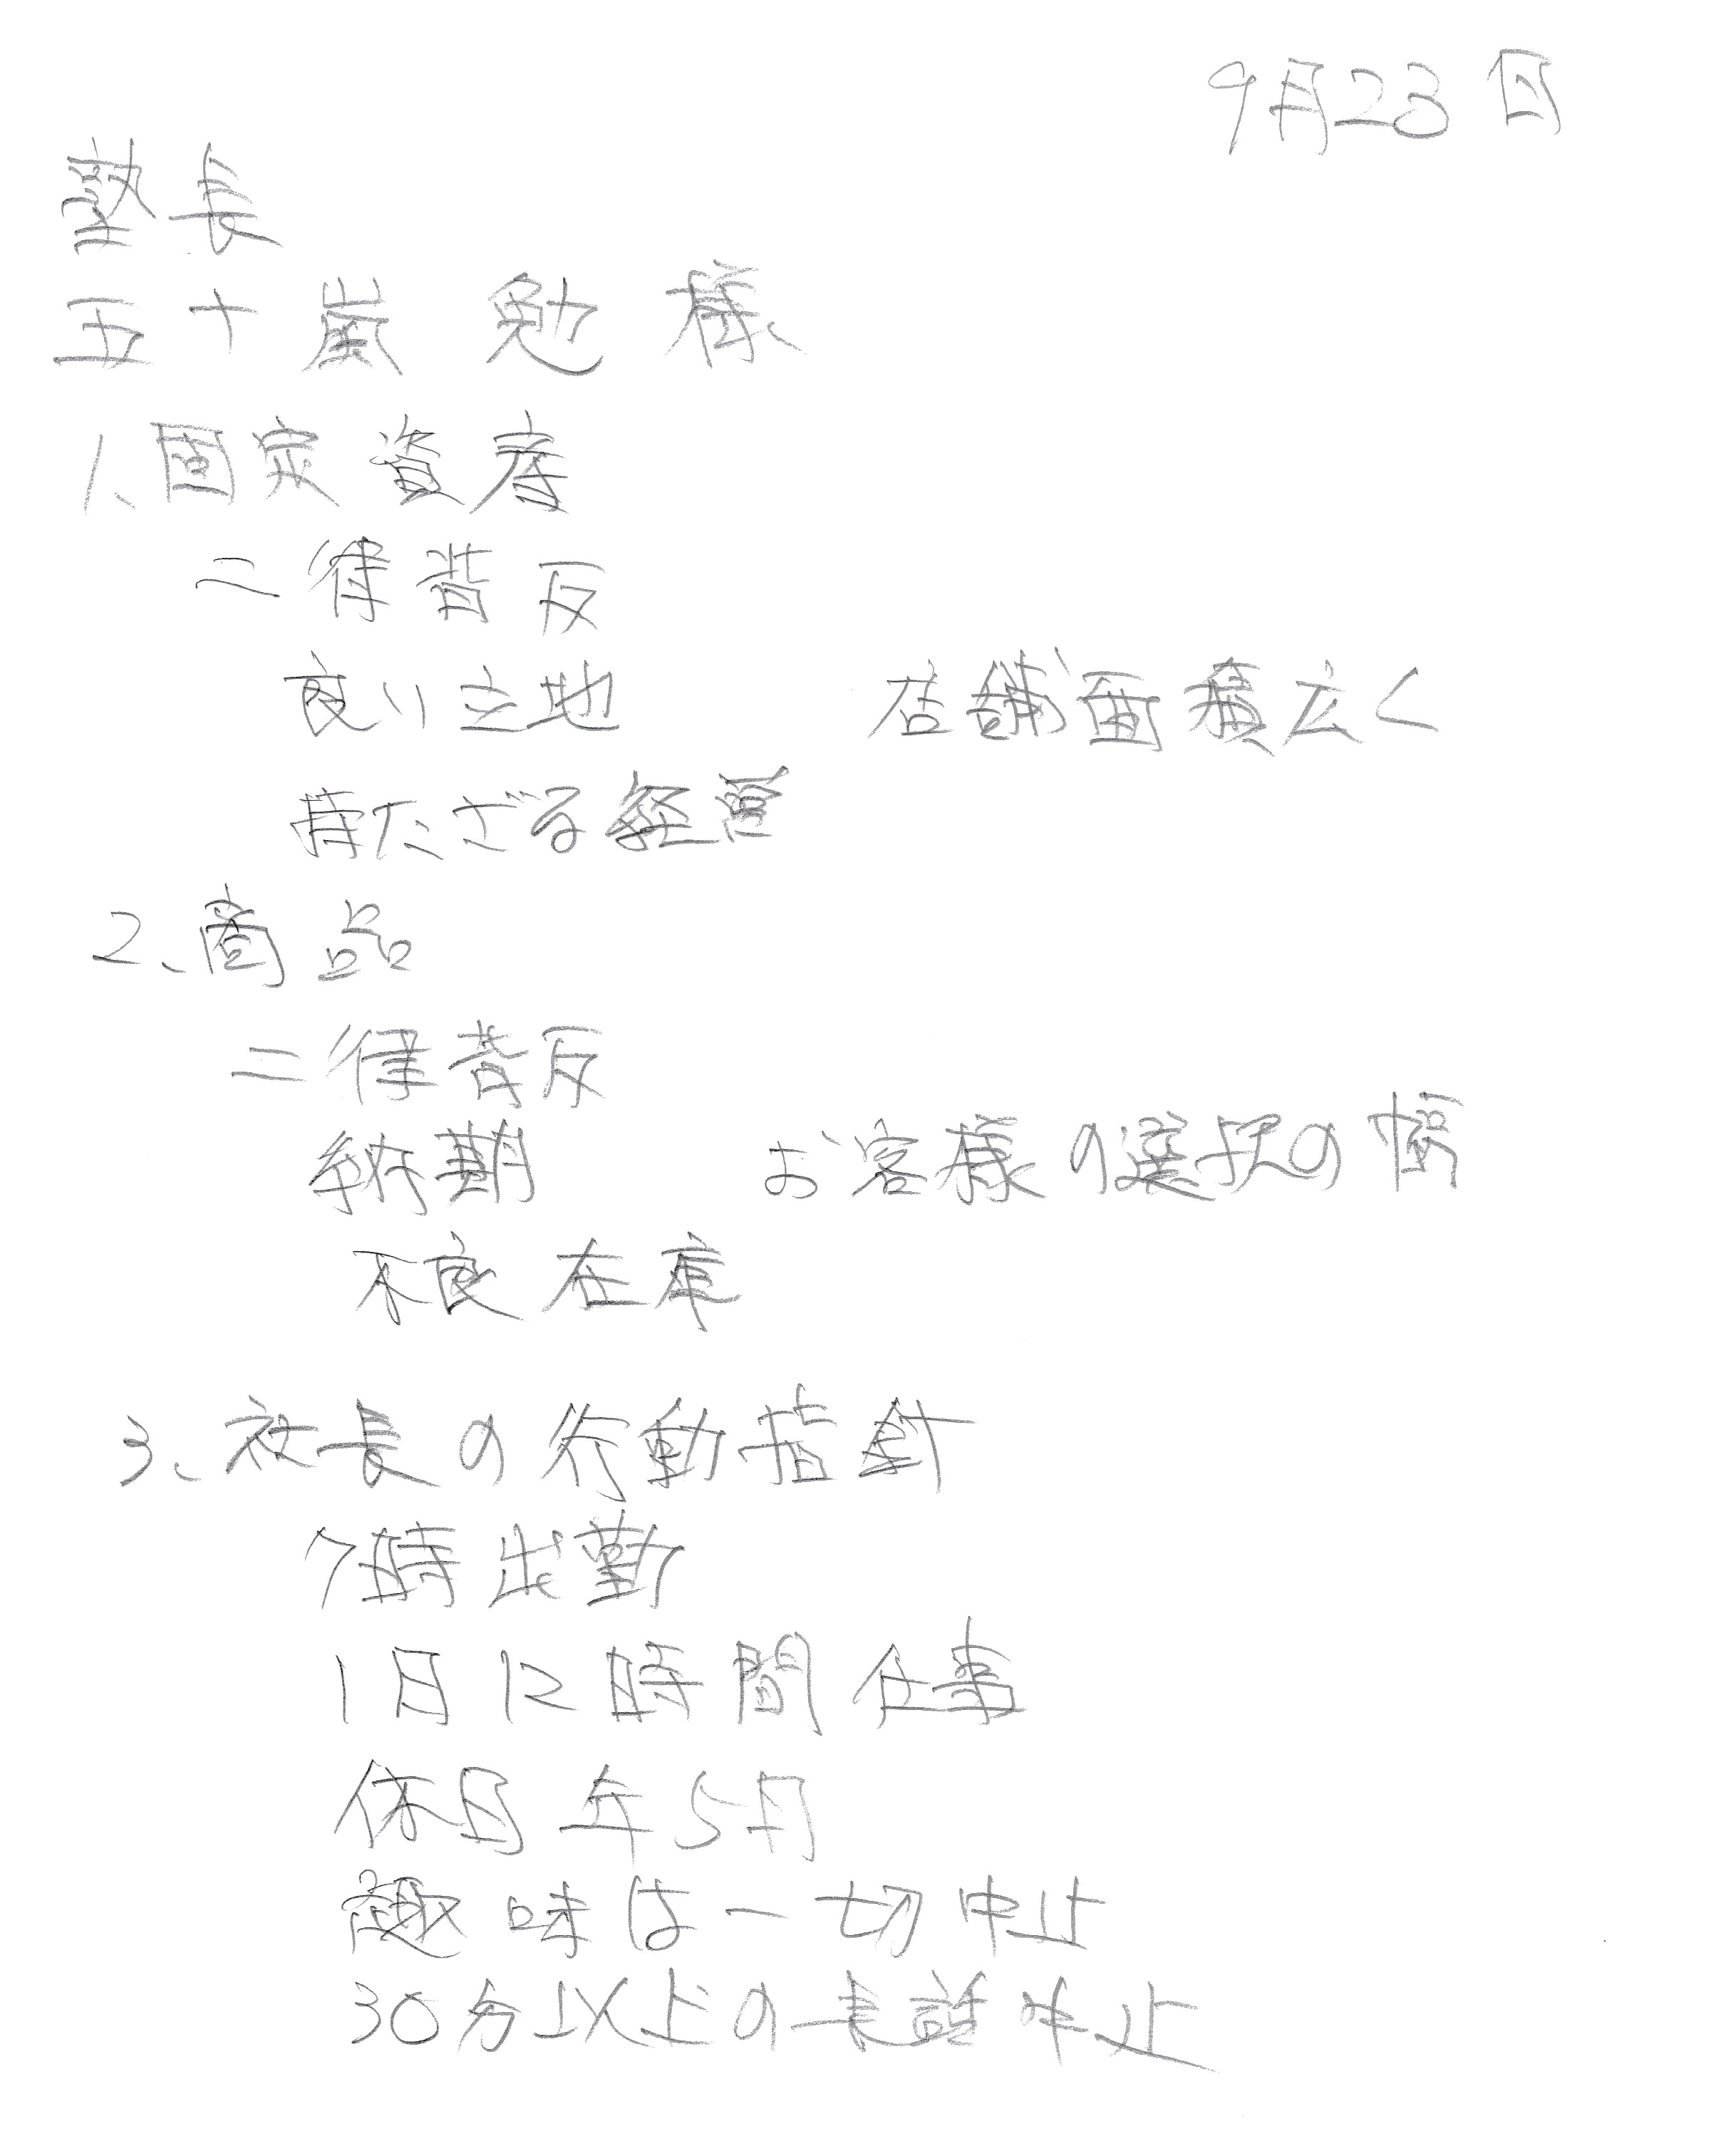 9月23日
塾長
五十嵐 勉 様
1、固定資産
二律背反
良い立地　店舗面積広く
持たざる経営
2、商品
二律背反
納期　お客様の選択の幅
不良在庫
3、社長の行動指針
7時出勤
1日12時間仕事
休日 年5日
趣味は一切中止
30分以上の長話中止